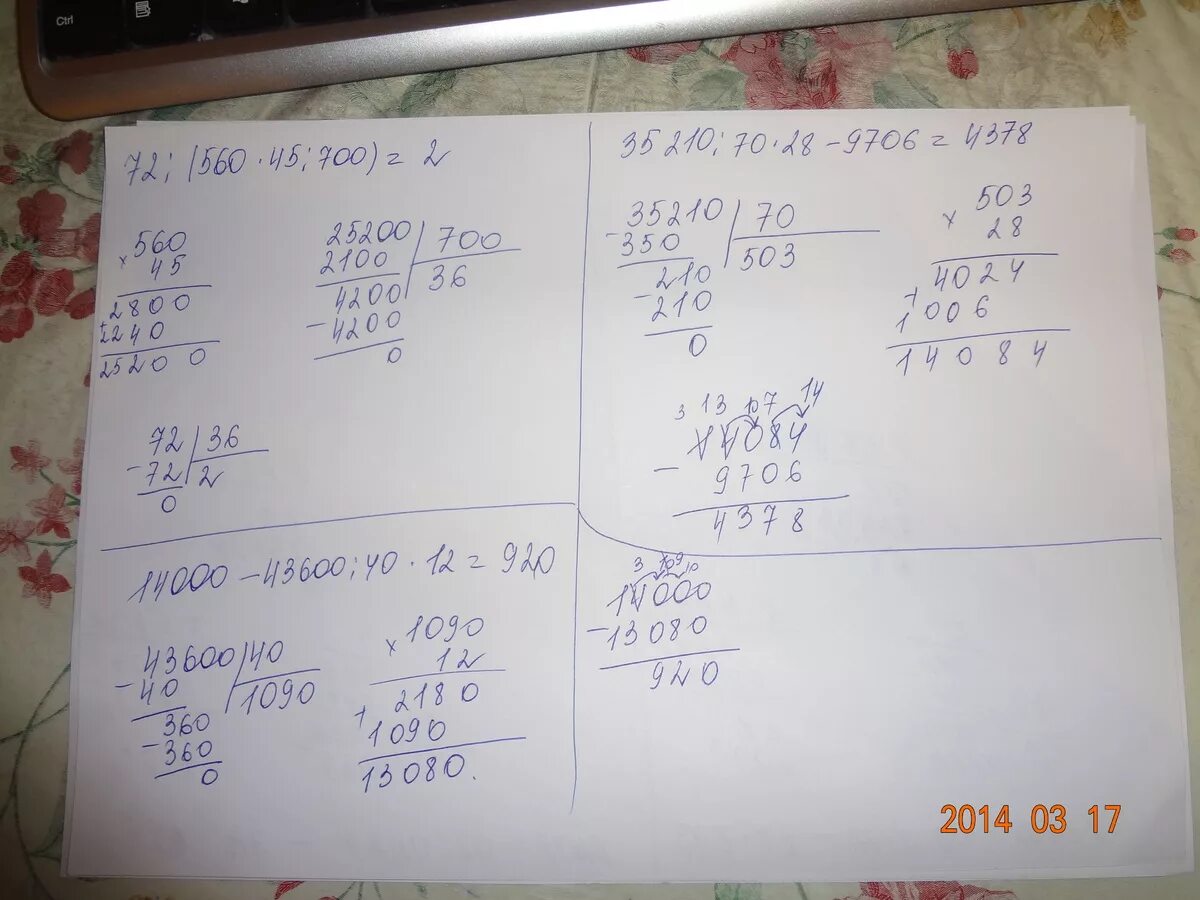 Ctrl
72 : (560 · 45 : 700) = 2
× 560
45
2800
+ 2240
25200
25200 | 700
2100 | 36
4200
- 4200
0
72 | 36
- 72 | 2
0
35210 : 70 · 28 - 9706 = 4378
- 35210 | 70
350 | 503
210
- 210
0
503
× 28
4024
+ 1006
14084
3 13 10 7 14
14084
- 9706
4378
14000 - 43600 : 40 · 12 = 920
43600 | 40
- 40 | 1090
360
- 360
0
× 1090
12
2180
+ 1090
13080.
3 10 9 10
14000
- 13080
920
2014 03 17